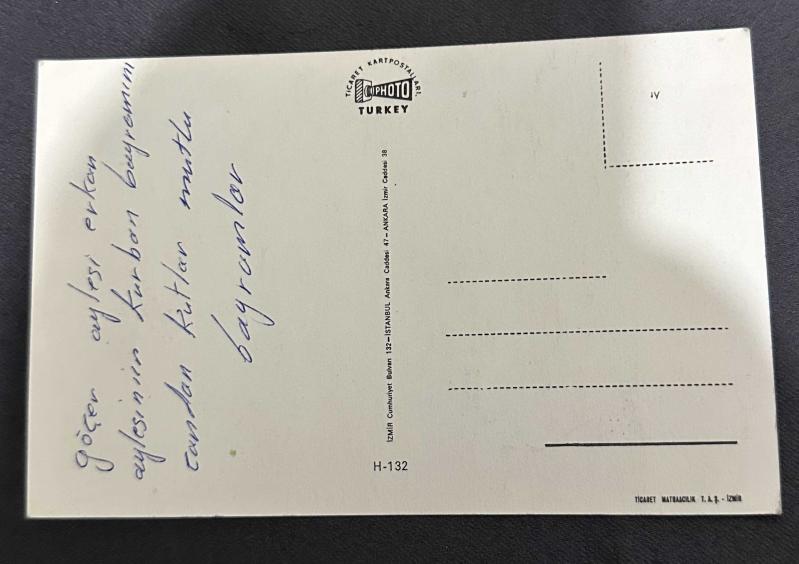 göçer aylesi erkan
aylesinin kurban bayramını
candan kutlar mutlu
bayramlar
TİCARET KARTPOSTALLARI,
PHOTO
TURKEY
İZMİR Cumhuriyet Bulvarı 132-İSTANBUL Ankara Caddesi 47-ANKARA İzmir Caddesi 38
H-132
TİCARET MATBAACILIK T. A. Ş. - İZMİR